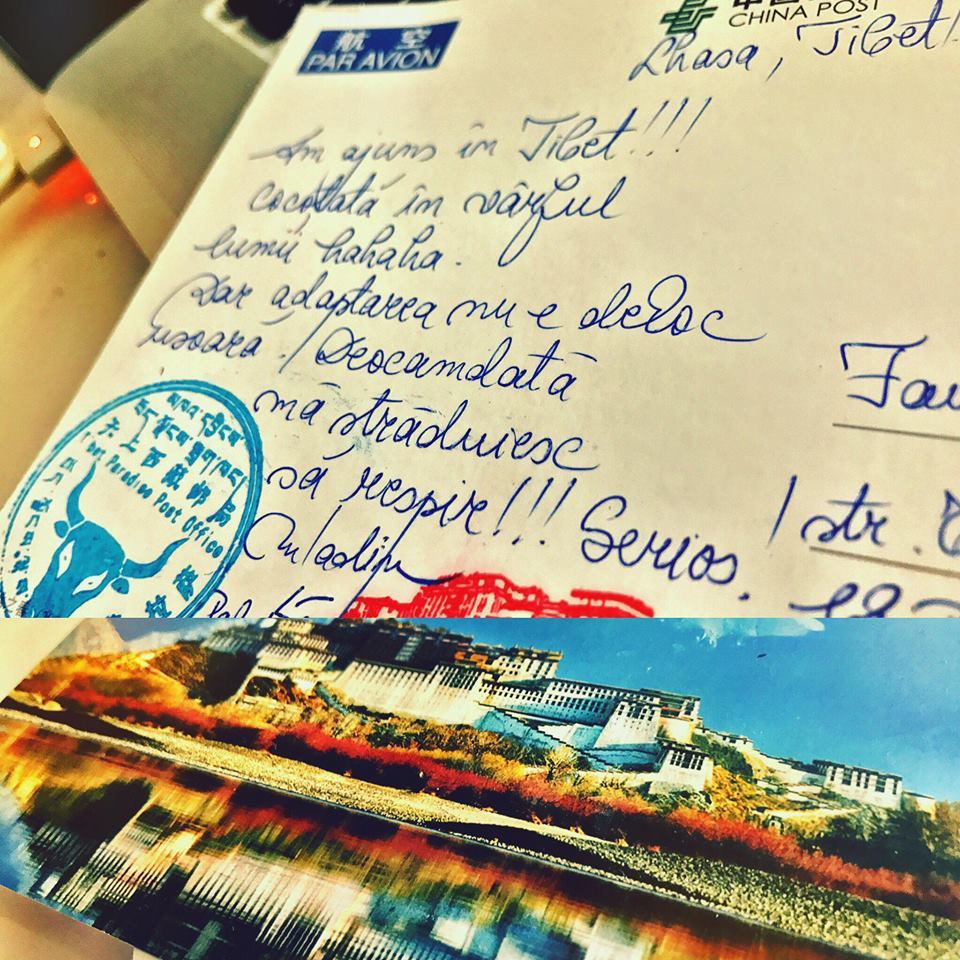 航 空
PAR AVION
CHINA POST
Lhasa, Tibet!
Am ajuns în Tibet!!!
cocoțată în vârful
lumii hahaha.
Dar adaptarea nu e deloc
ușoară! Deocamdată
mă străduiesc
să respir!!! Serios.
str.
天上西藏邮局
The Paradise Post Office